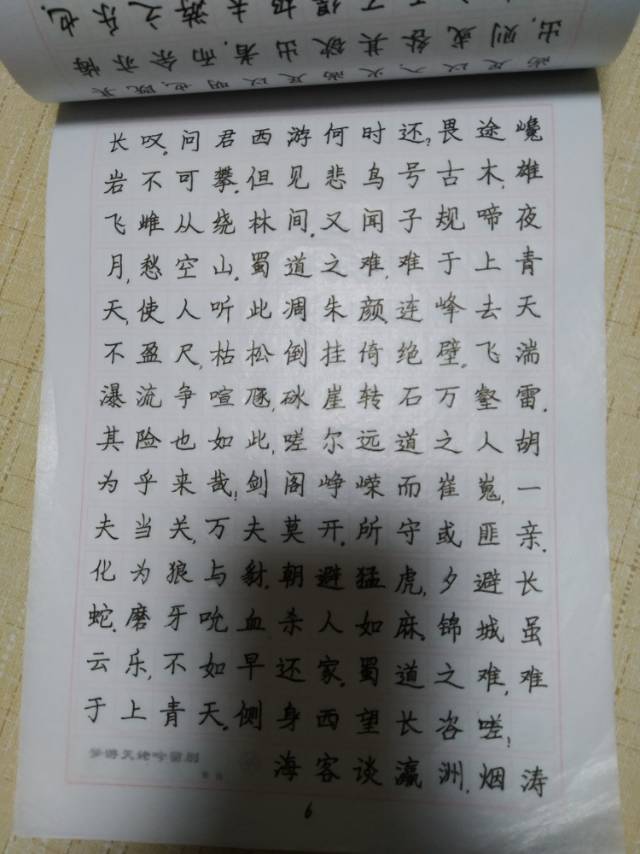 尚足以入,火尚足以明也.既其
出,则或咎其欲出者.而余亦悔
不得极夫游之乐也.
长叹。问君西游何时还?畏途巉
岩不可攀.但见悲鸟号古木,雄
飞雌从绕林间.又闻子规啼夜
月,愁空山.蜀道之难,难于上青
天,使人听此凋朱颜.连峰去天
不盈尺,枯松倒挂倚绝壁.飞湍
瀑流争喧豗,砯崖转石万壑雷.
其险也如此,嗟尔远道之人胡
为乎来哉!剑阁峥嵘而崔嵬,一
夫当关,万夫莫开.所守或匪亲.
化为狼与豺.朝避猛虎,夕避长
蛇.磨牙吮血杀人如麻.锦城虽
云乐,不如早还家.蜀道之难,难
于上青天.侧身西望长咨嗟!
梦游天姥吟留别
海客谈瀛洲.烟涛
6